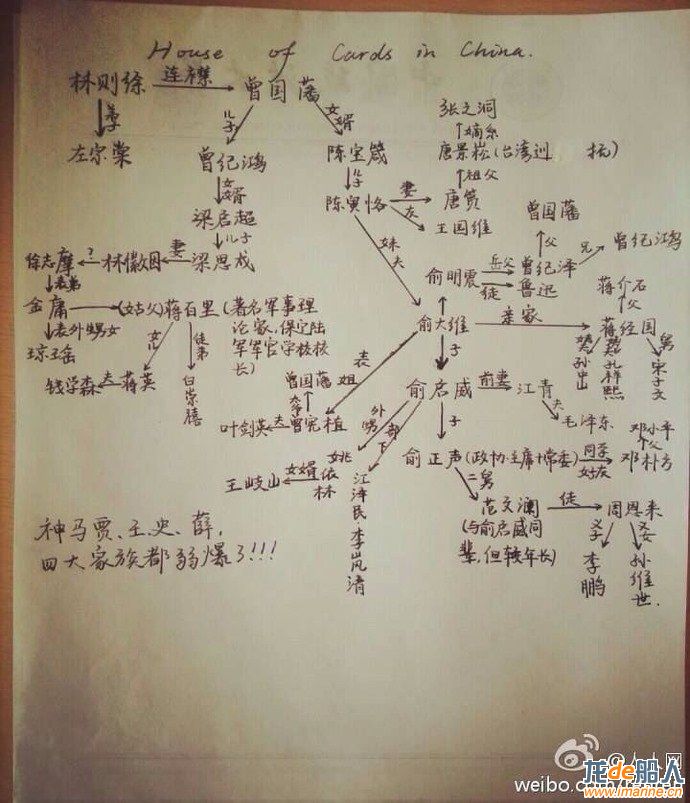 House of Cards in China.
林则徐 连襟 曾国藩
女婿
儿子
张之洞
嫡系
左宗棠
曾纪鸿
陈宝箴
唐景崧(台湾巡 抚)
女婿
儿子
祖父
梁启超
陈寅恪 妻 唐筼
友
王国维
曾国藩
儿子
父
徐志摩 ? 林徽因 妻 梁思成
妹夫
俞明震 岳父 曾纪泽 兄 曾纪鸿
徒 鲁迅
蒋介石
表弟
父
金庸 (姑父)蒋百里 (著名军事理
论家,保定陆
军军官学校校
长)
俞大维 亲家 蒋经国
舅
表外甥女
女
徒弟
子
孙中山
孔祥熙
宋子文
琼瑶
钱学森 夫 蒋英
白崇禧
曾国藩
表姐
俞启威 前妻 江青
夫
毛泽东
叶剑英 夫 曾宪植
外甥
部下
子
邓小平
父
俞正声(政协主席+常委) 同学 好友 邓朴方
王岐山 女婿 姚依林
江泽民
李岚清
二舅
范文澜 徒 周恩来
(与俞启威同
辈,但较年长)
义子
义女
李鹏
孙维世.
神马贾、王、史、薛,
四大家族都弱爆了!!!
@人人网
龙de船人
www.imarine.cn
weibo.com/renren